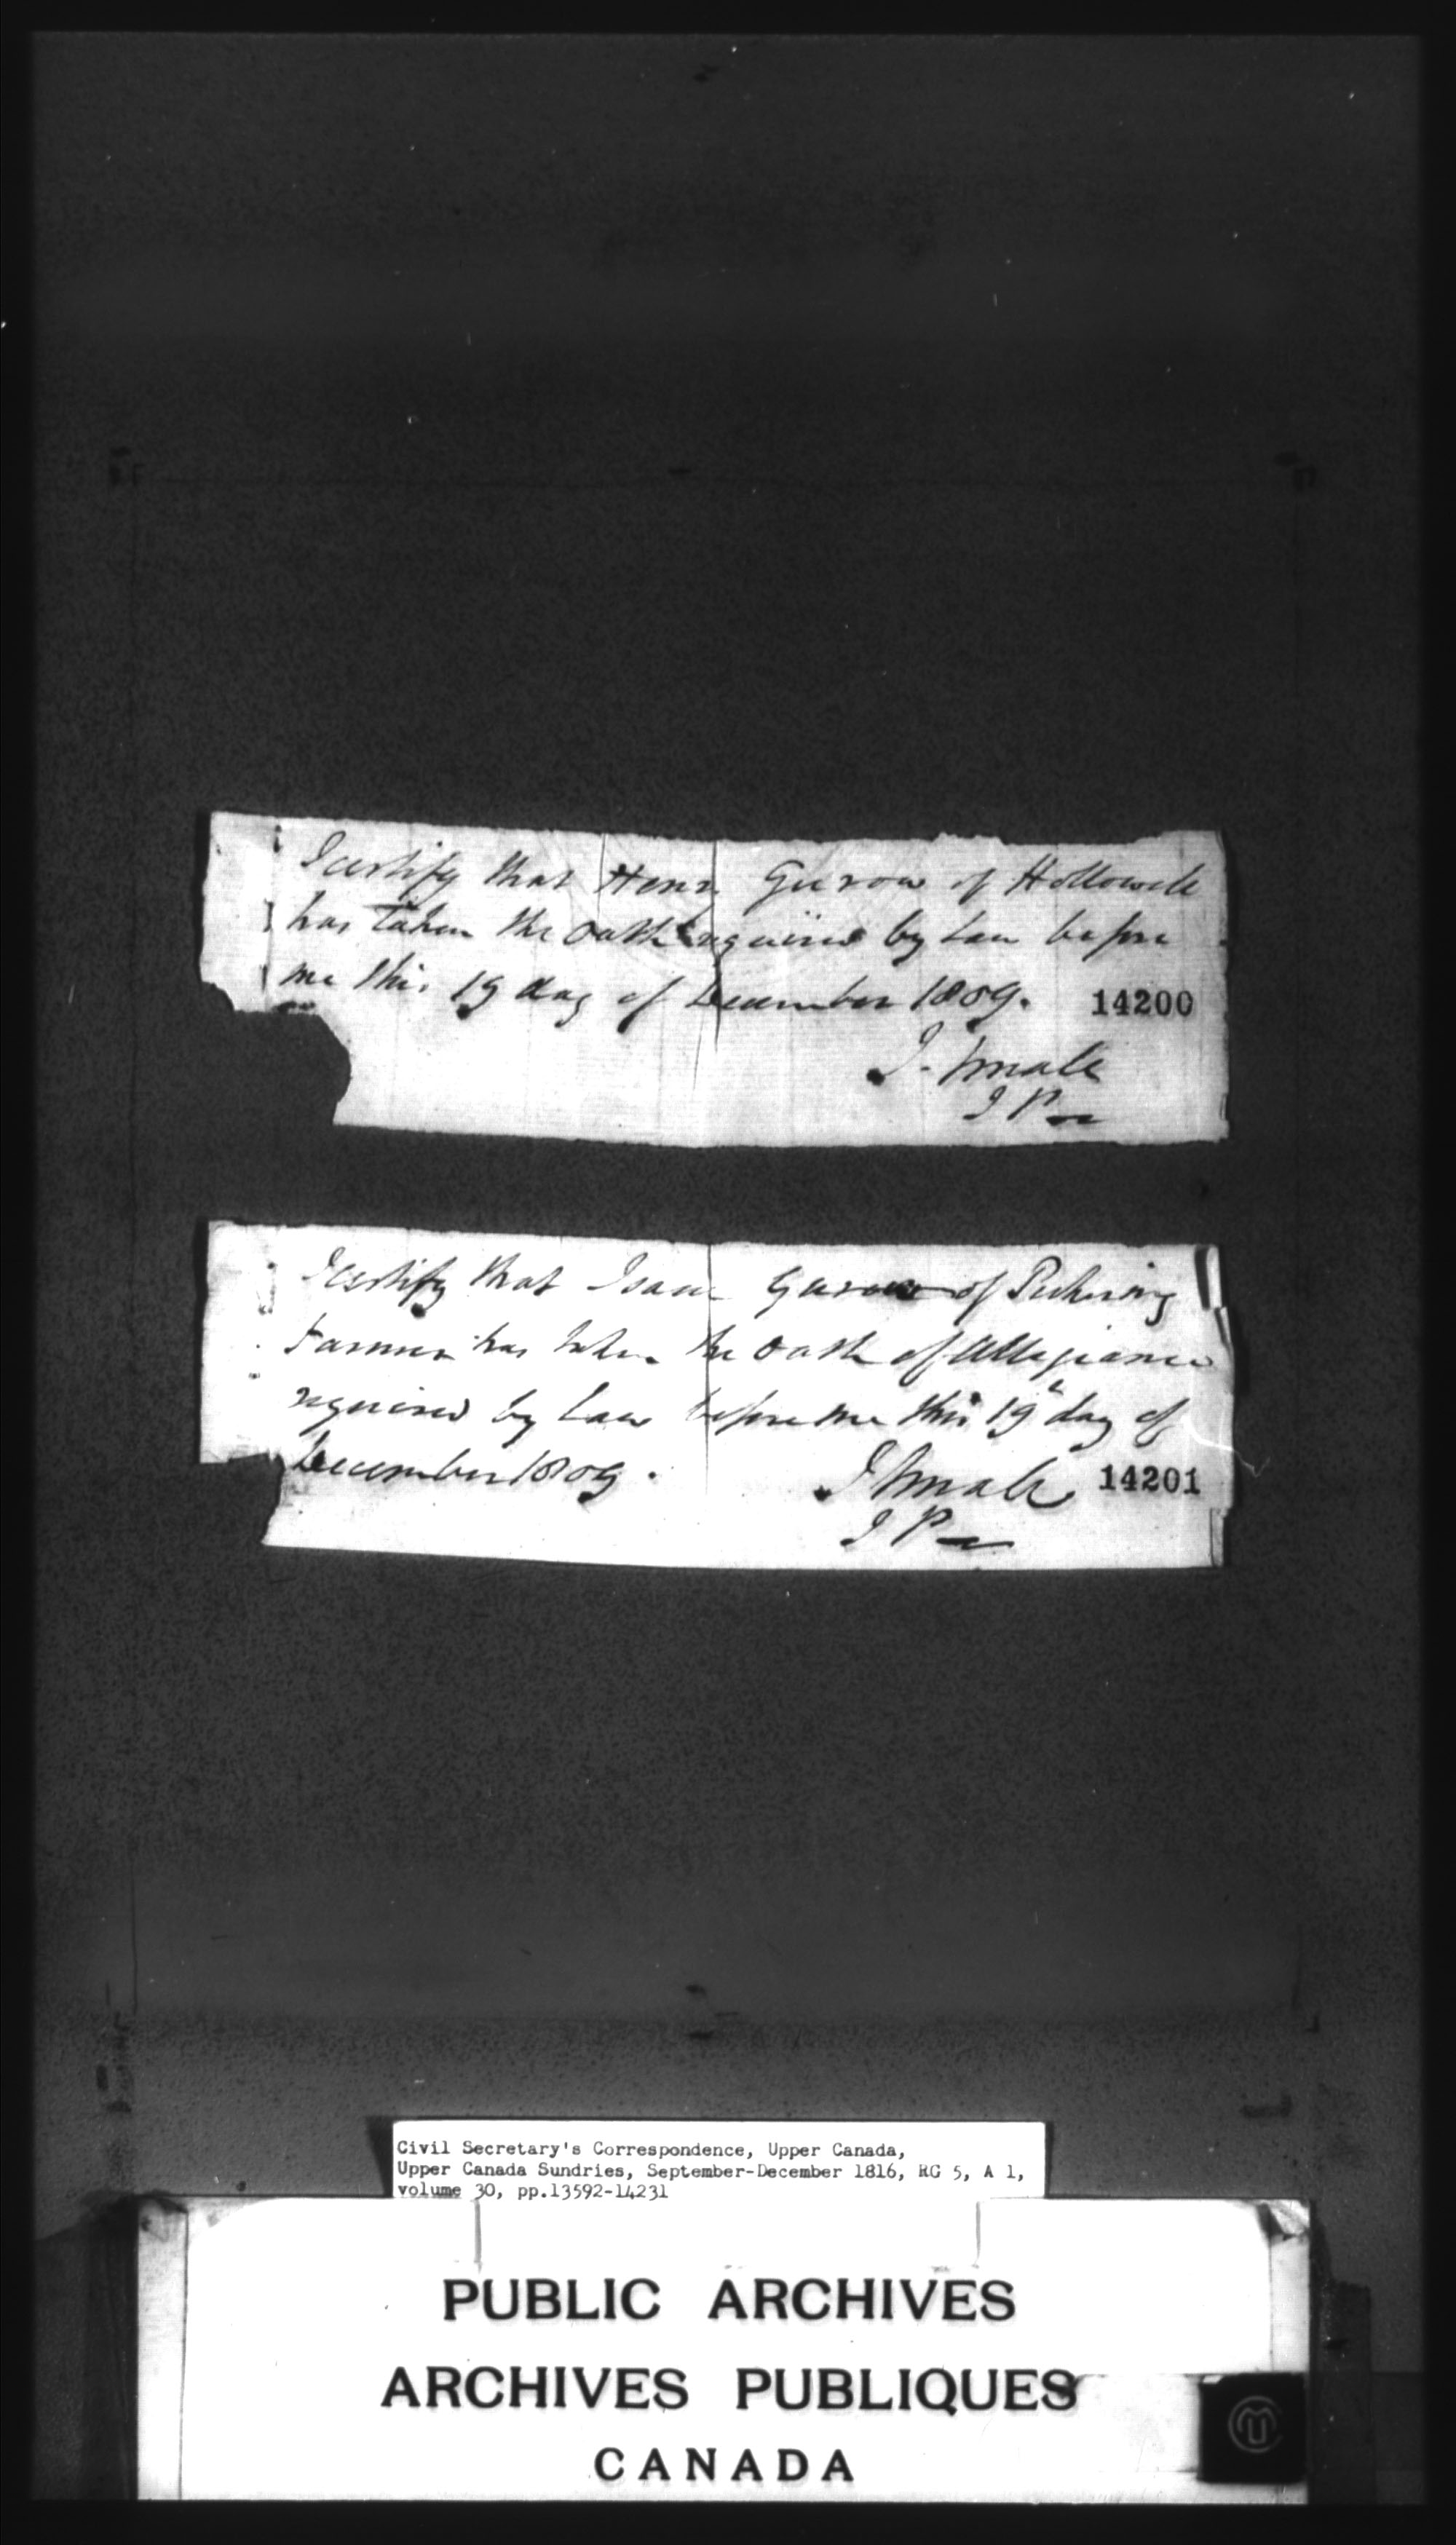 I certify that Henry Gerow of Hollowell
has taken the Oath required by Law before
me this 19 day of December 1809.
14200
J. Small
J P
I certify that Isaac Gerow of Pickering
Farmer has taken the Oath of Allegiance
required by Law before me this 19 day of
December 1809.
J Small
14201
J P
Civil Secretary's Correspondence, Upper Canada,
Upper Canada Sundries, September-December 1816, RG 5, A 1,
volume 30, pp.13592-14231
PUBLIC ARCHIVES
ARCHIVES PUBLIQUES
CANADA